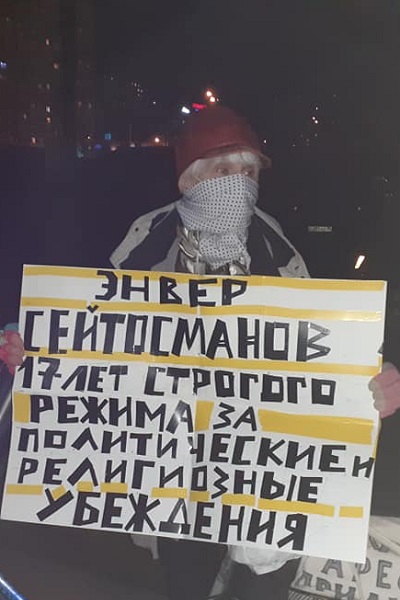 ЭНВЕР
СЕЙТОСМАНОВ
17 ЛЕТ СТРОГОГО
РЕЖИМА ЗА
ПОЛИТИЧЕСКИЕ И
РЕЛИГИОЗНЫЕ
УБЕЖДЕНИЯ